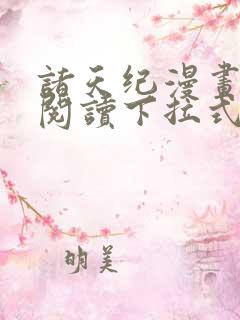 諸天纪漫畫
閱讀下拉式
明美